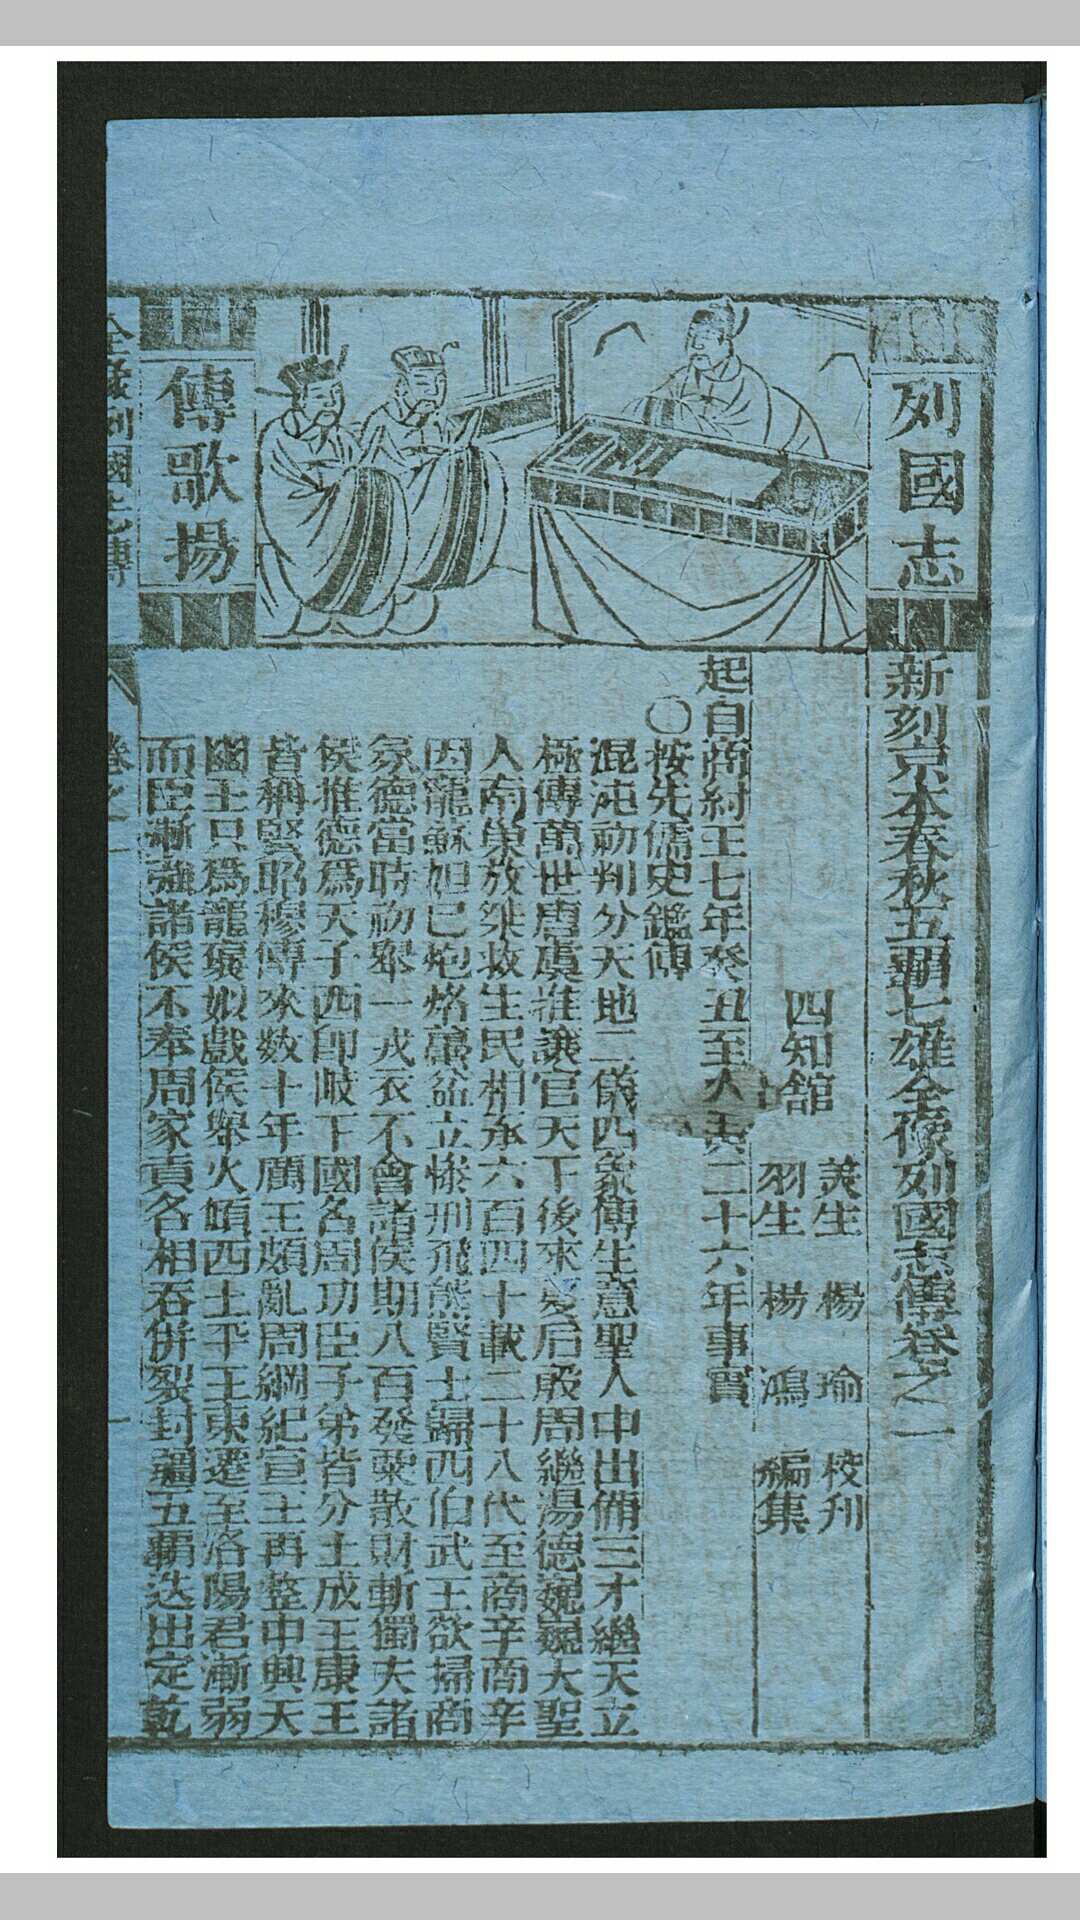 列國志
傳歌揚
新刻京本春秋五覇七雄全像列國志傳卷之一
四知舘
羙生 楊 瑜 校刊
羽生 楊 鴻 編集
起自商紂王七年癸丑至
二十六年事實
〇按先儒史鑑傳
混沌初判分天地二儀四象傳生意聖人中出備三才繼天立
極傳萬世唐虞推讓官天下後來夏后殷周繼湯德巍巍大聖
人南巢放桀救生民相承六百四十載二十八代至商辛商辛
因寵蘇妲己炮烙蠆盆立慘刑飛熊賢士歸西伯武王欲掃商
氛德當時初舉一戎衣不會諸侯期八百發粟散財斬獨夫諸
侯推德爲天子西卽岐下國名周功臣子弟皆分土成王康王
皆稱賢昭穆傳來數十年厲王頗亂周綱紀宣王再整中興天
幽王只爲龍漦姒戲侯舉火傾西土平王東遷至洛陽君漸弱
而臣漸強諸侯不奉周家貢各相吞併裂封疆五覇迭出定乾
全像列國志傳
卷之一
一